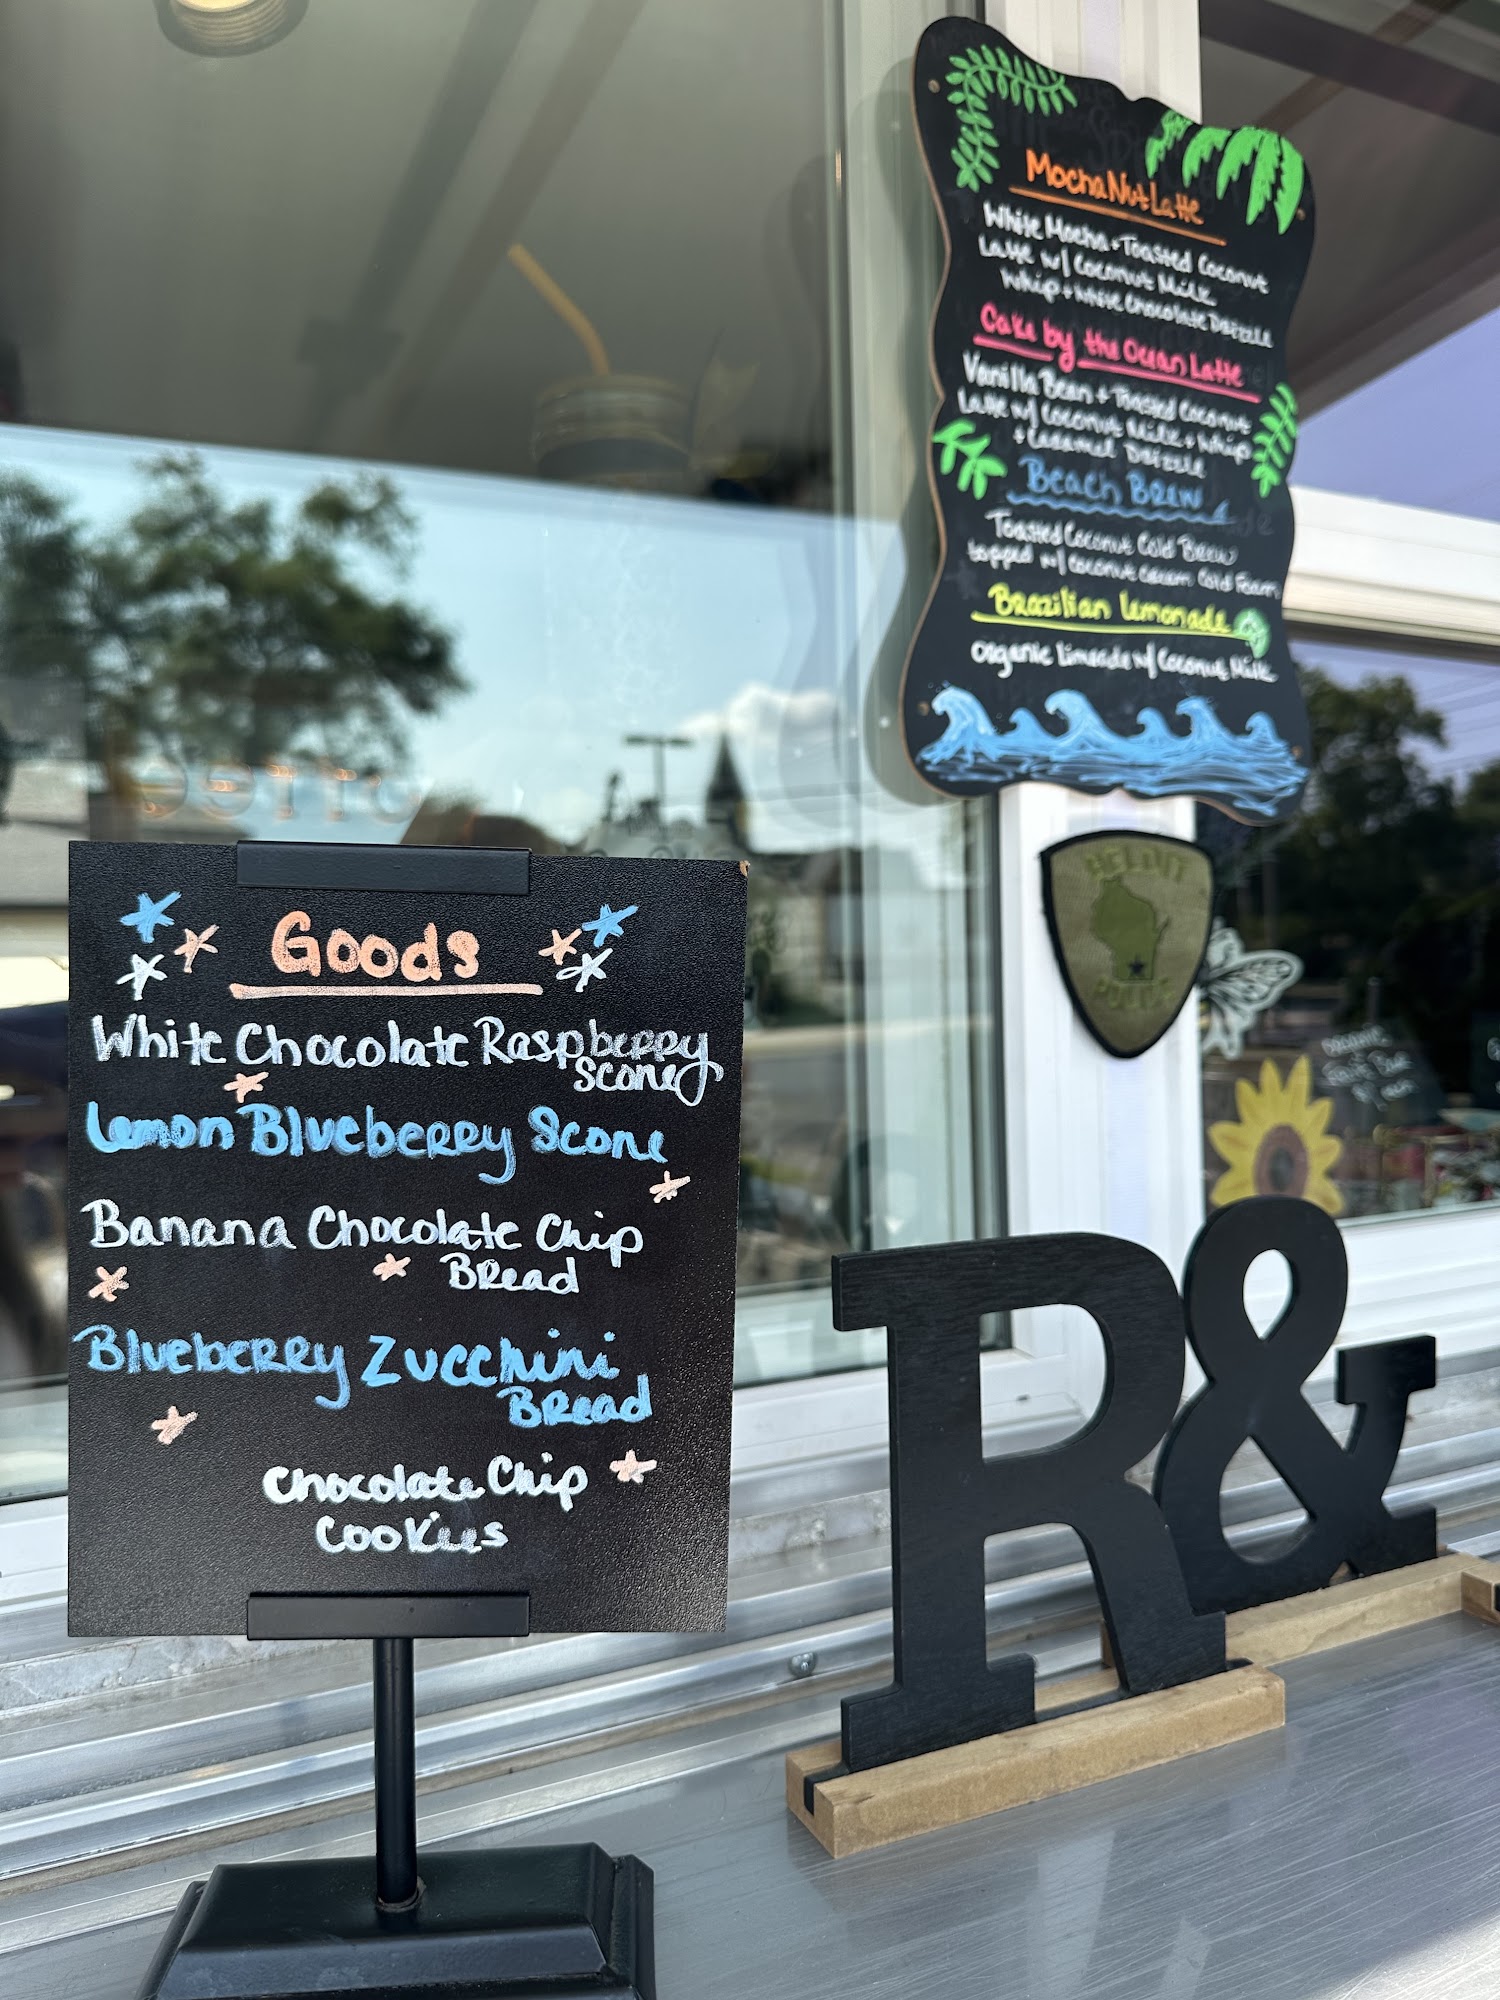 Mocha Nut Latte
White Mocha + Toasted Coconut
Latte w/ Coconut Milk
Whip + White Chocolate Drizzle
Cake by the Ocean Latte
Vanilla Bean + Toasted Coconut
Latte w/ Coconut Milk + Whip
+ Caramel Drizzle
Beach Brew
Toasted Coconut Cold Brew
topped w/ coconut cream Cold Foam
Brazilian Lemonade
Organic limeade w/ Coconut Milk
BELOIT
POLICE
Goods
White Chocolate Raspberry
Scone
Lemon Blueberry Scone
Banana Chocolate Chip
Bread
Blueberry Zucchini
Bread
Chocolate Chip
Cookies
R&